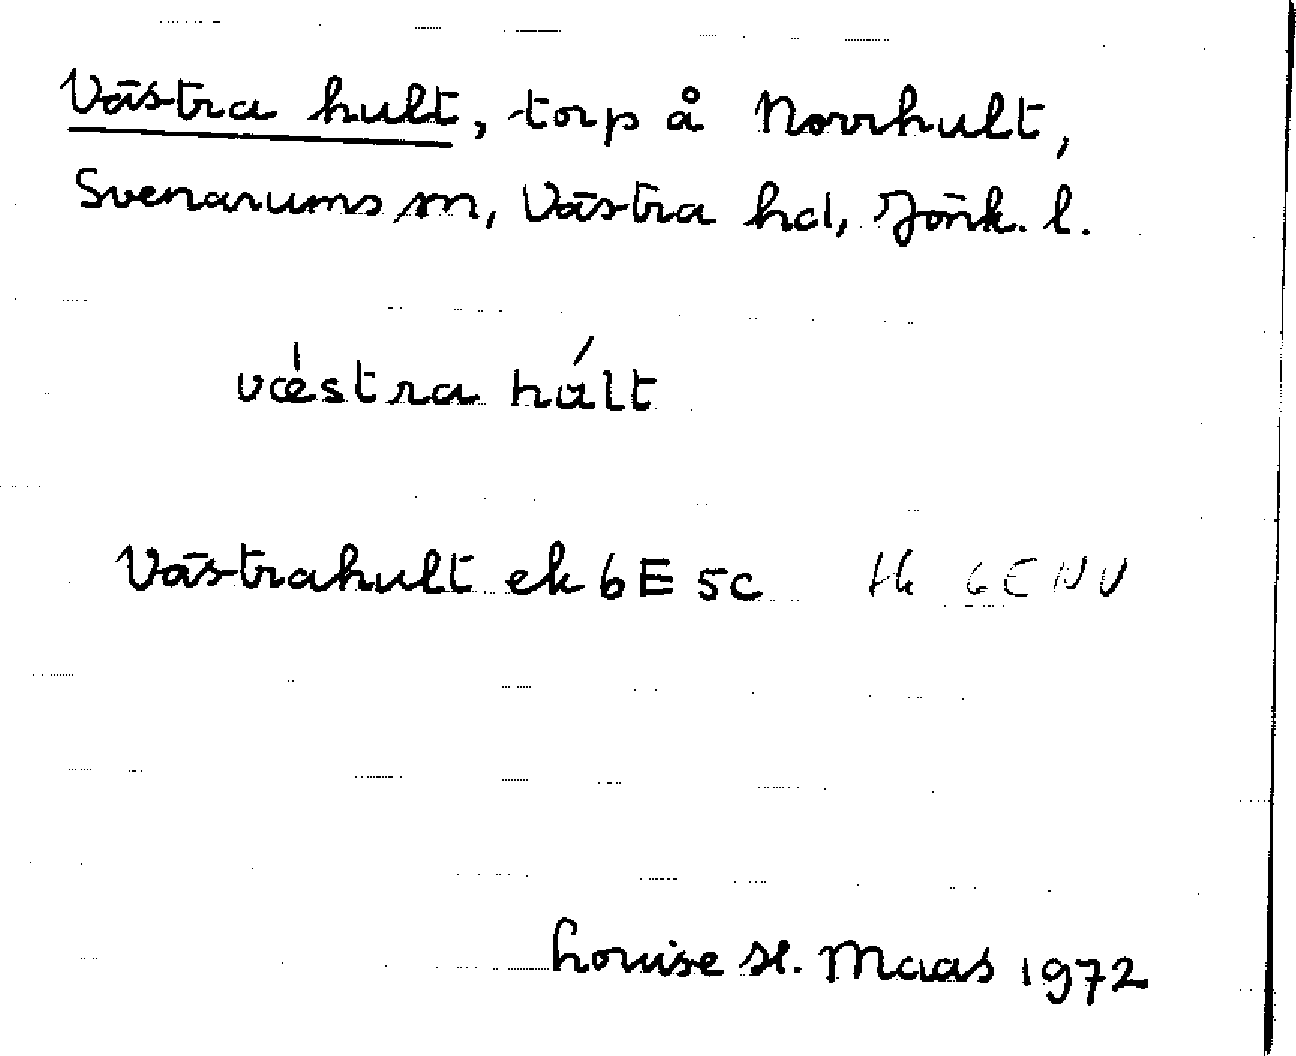 Västra hult, torp å Norrhult,
Svenarums sn, Västra hd, Jönk. l.
væ̀stra hált
Västrahult ek 6E 5c tk 6E NV
Louise H. Maas 1972